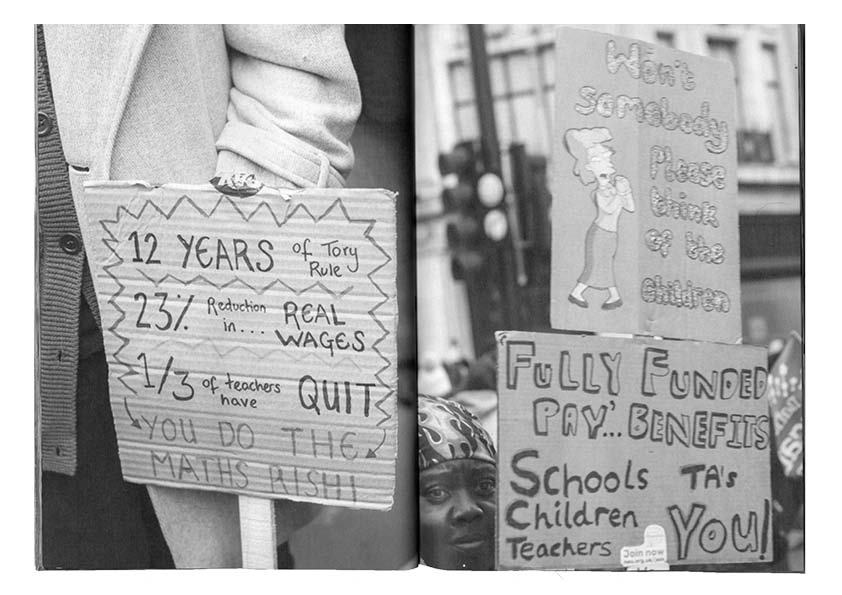 12 YEARS of Tory
Rule
23% Reduction
in... REAL
WAGES
1/3 of teachers
have QUIT
YOU DO THE
MATHS RISHI
Won't
somebody
Please
think
of the
children
FULLY FUNDED
PAY... BENEFITS
Schools TA's
Children YOU!
Teachers
Join now